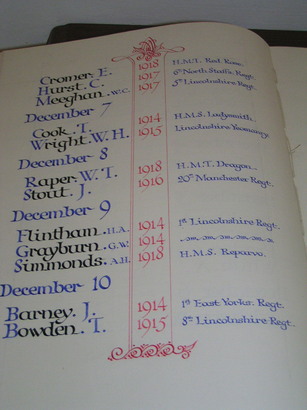 Cromer. E. 1918 H.M.T. Red Rose.
Hurst. C. 1917 6th North Staffs. Regt.
Meeghan. W.C. 1917 5th Lincolnshire Regt.
December 7
Cook. T. 1914 H.M.S. Ladysmith.
Wright. W. H. 1915 Lincolnshire Yeomanry.
December 8
Raper. W. T. 1918 H.M.T. Dragon.
Stout. J. 1916 20th Manchester Regt.
December 9
Flintham. H.A. 1914 1st Lincolnshire Regt.
Grayburn. G.W. 1914
Simmonds. A.H. 1918 H.M.S. Reparvo.
December 10
Barney. J. 1914 1st East Yorks. Regt.
Bowden. T. 1915 8th Lincolnshire Regt.